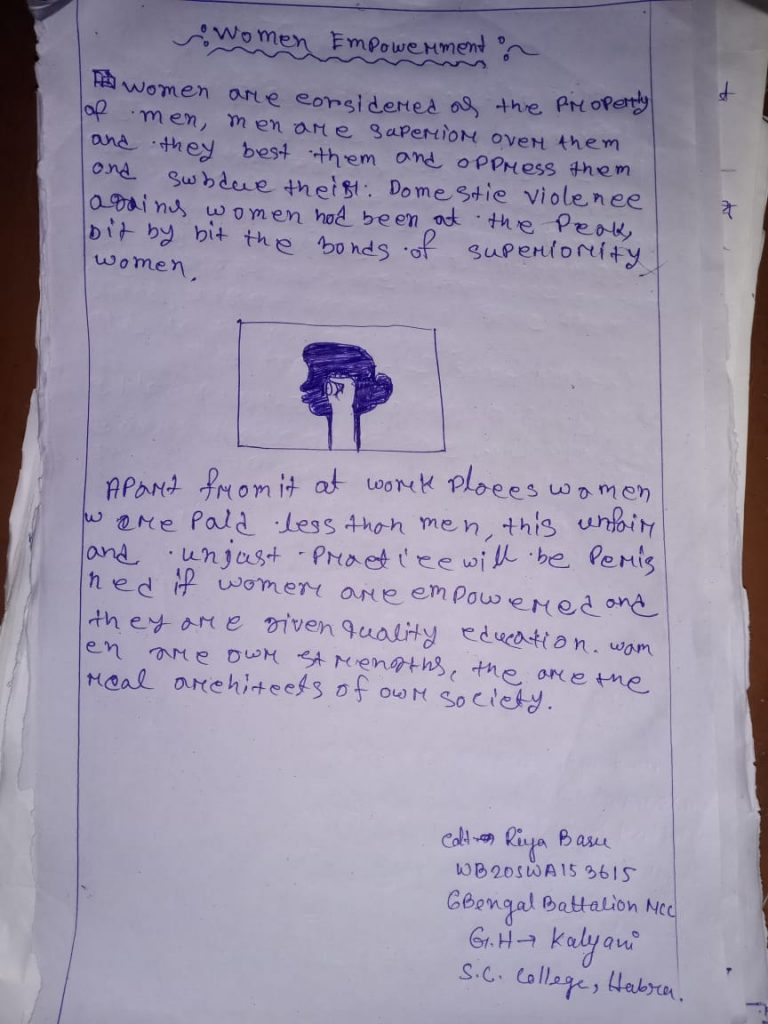 Women Empowerment
Women are considered as the property
of men, men are superior over them
and they best them and oppress them
and subdue
Domestic violence
against women had been at the peak,
bit by bit the bonds of superiority
women.
Apart from it at work places women
w are paid less than men, this unfair
and unjust practice will be peris
hed if women are empowered and
they are given quality education. wom
en are own strengths, the are the
real architects of own society.
cdt → Riya Basu
WB20SWA153615
6 Bengal Battalion NCC
G.H → Kalyani
S.C. College, Habra.